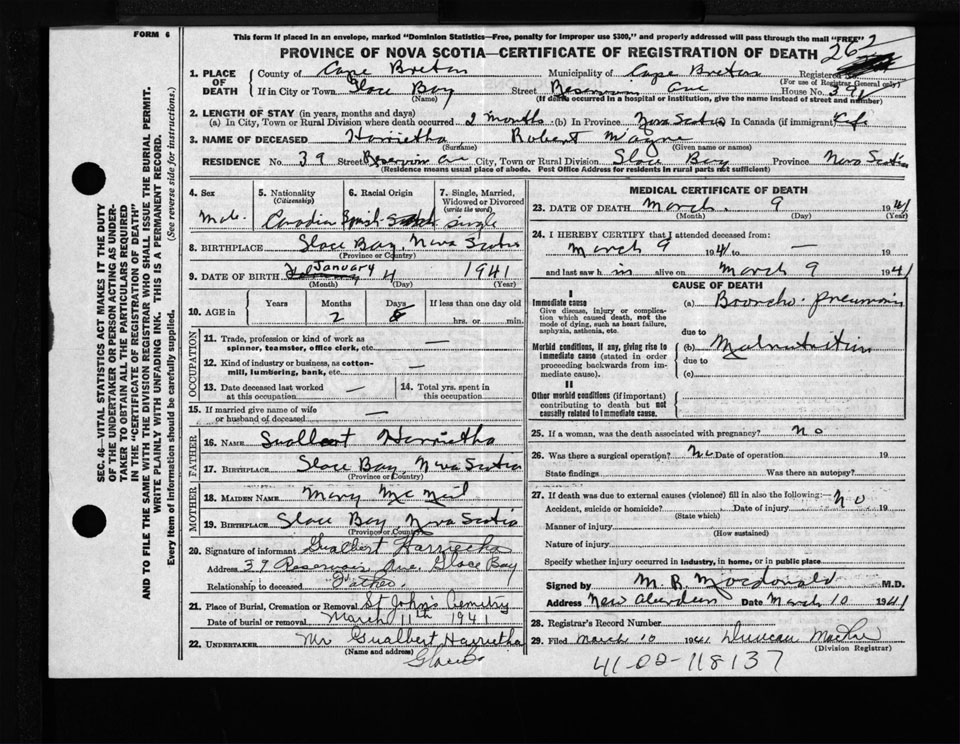 FORM 6
This form if placed in an envelope, marked "Dominion Statistics—Free, penalty for improper use $300," and properly addressed will pass through the mail "FREE"
PROVINCE OF NOVA SCOTIA—CERTIFICATE OF REGISTRATION OF DEATH 262
1. PLACE OF DEATH County of Cape Breton Municipality of Cape Breton Registered No.
(For use of Registrar General only)
If in City or Town Glace Bay Street Reservoir Ave House No. 39
(Name) (If death occurred in a hospital or institution, give the name instead of street and number)
2. LENGTH OF STAY (in years, months and days)
(a) In City, Town or Rural Division where death occurred 2 months (b) In Province Nova Scotia (c) In Canada (if immigrant) Life
3. NAME OF DECEASED Harrietha Robert
(Surname) (Given name or names)
RESIDENCE No. 39 Street Reservoir Ave City, Town or Rural Division Glace Bay Province Nova Scotia
(Residence means usual place of abode. Post Office Address for residents in rural parts not sufficient)
4. Sex
Male
5. Nationality
(Citizenship)
6. Racial Origin
7. Single, Married, Widowed or Divorced
(write the word)
Single
8. BIRTHPLACE Glace Bay, Nova Scotia
(Province or Country)
9. DATE OF BIRTH January 4 1941
(Month) (Day) (Year)
10. AGE in Years Months Days If less than one day old
2 hrs. or min.
OCCUPATION
11. Trade, profession or kind of work as spinner, teamster, office clerk, etc. —
12. Kind of industry or business, as cotton-mill, lumbering, bank, etc. —
13. Date deceased last worked at this occupation —
14. Total yrs. spent in this occupation
15. If married give name of wife or husband of deceased —
FATHER
16. NAME Gualbert Harrietha
17. BIRTHPLACE Glace Bay, Nova Scotia
(Province or Country)
MOTHER
18. MAIDEN NAME Mary McNeil
19. BIRTHPLACE Glace Bay, Nova Scotia
(Province or Country)
20. Signature of informant Gualbert Harrietha
Address 39 Reservoir Ave. Glace Bay
Relationship to deceased Father.
21. Place of Burial, Cremation or Removal St John's Cemetry
Date of burial or removal March 11th 1941
22. UNDERTAKER Mr Gualbert Harrietha
(Name and address)
MEDICAL CERTIFICATE OF DEATH
23. DATE OF DEATH March 9 1941
(Month) (Day) (Year)
24. I HEREBY CERTIFY that I attended deceased from:
March 9 1941 to — 19
and last saw him alive on March 9 1941
CAUSE OF DEATH
I
Immediate cause
Give disease, injury or complication which caused death, not the mode of dying, such as heart failure, asphyxia, asthenia, etc.
(a) Broncho-pneumonia
due to
Morbid conditions, if any, giving rise to immediate cause (stated in order proceeding backwards from immediate cause).
(b) Malnutrition
due to
(c)
II
Other morbid conditions (if important) contributing to death but not causally related to immediate cause.
25. If a woman, was the death associated with pregnancy? no
26. Was there a surgical operation? No Date of operation 19
State findings Was there an autopsy?
27. If death was due to external causes (violence) fill in also the following:—
Accident, suicide or homicide? Date of injury No 19
(State which)
Manner of injury
(How sustained)
Nature of injury
Specify whether injury occurred in industry, in home, or in public place.
Signed by M. R. Macdonald M.D.
Address New Aberdeen Date March 10 1941
28. Registrar's Record Number
29. Filed March 10 1941 Duncan
(Division Registrar)
41-02-118137
SEC. 46—VITAL STATISTICS ACT MAKES IT THE DUTY
OF THE UNDERTAKER OR PERSON ACTING AS UNDER-
TAKER TO OBTAIN ALL THE PARTICULARS REQUIRED
IN THE "CERTIFICATE OF REGISTRATION OF DEATH"
AND TO FILE THE SAME WITH THE DIVISION REGISTRAR WHO SHALL ISSUE THE BURIAL PERMIT.
WRITE PLAINLY WITH UNFADING INK. THIS IS A PERMANENT RECORD.
Every item of Information should be carefully supplied. (See reverse side for instructions.)